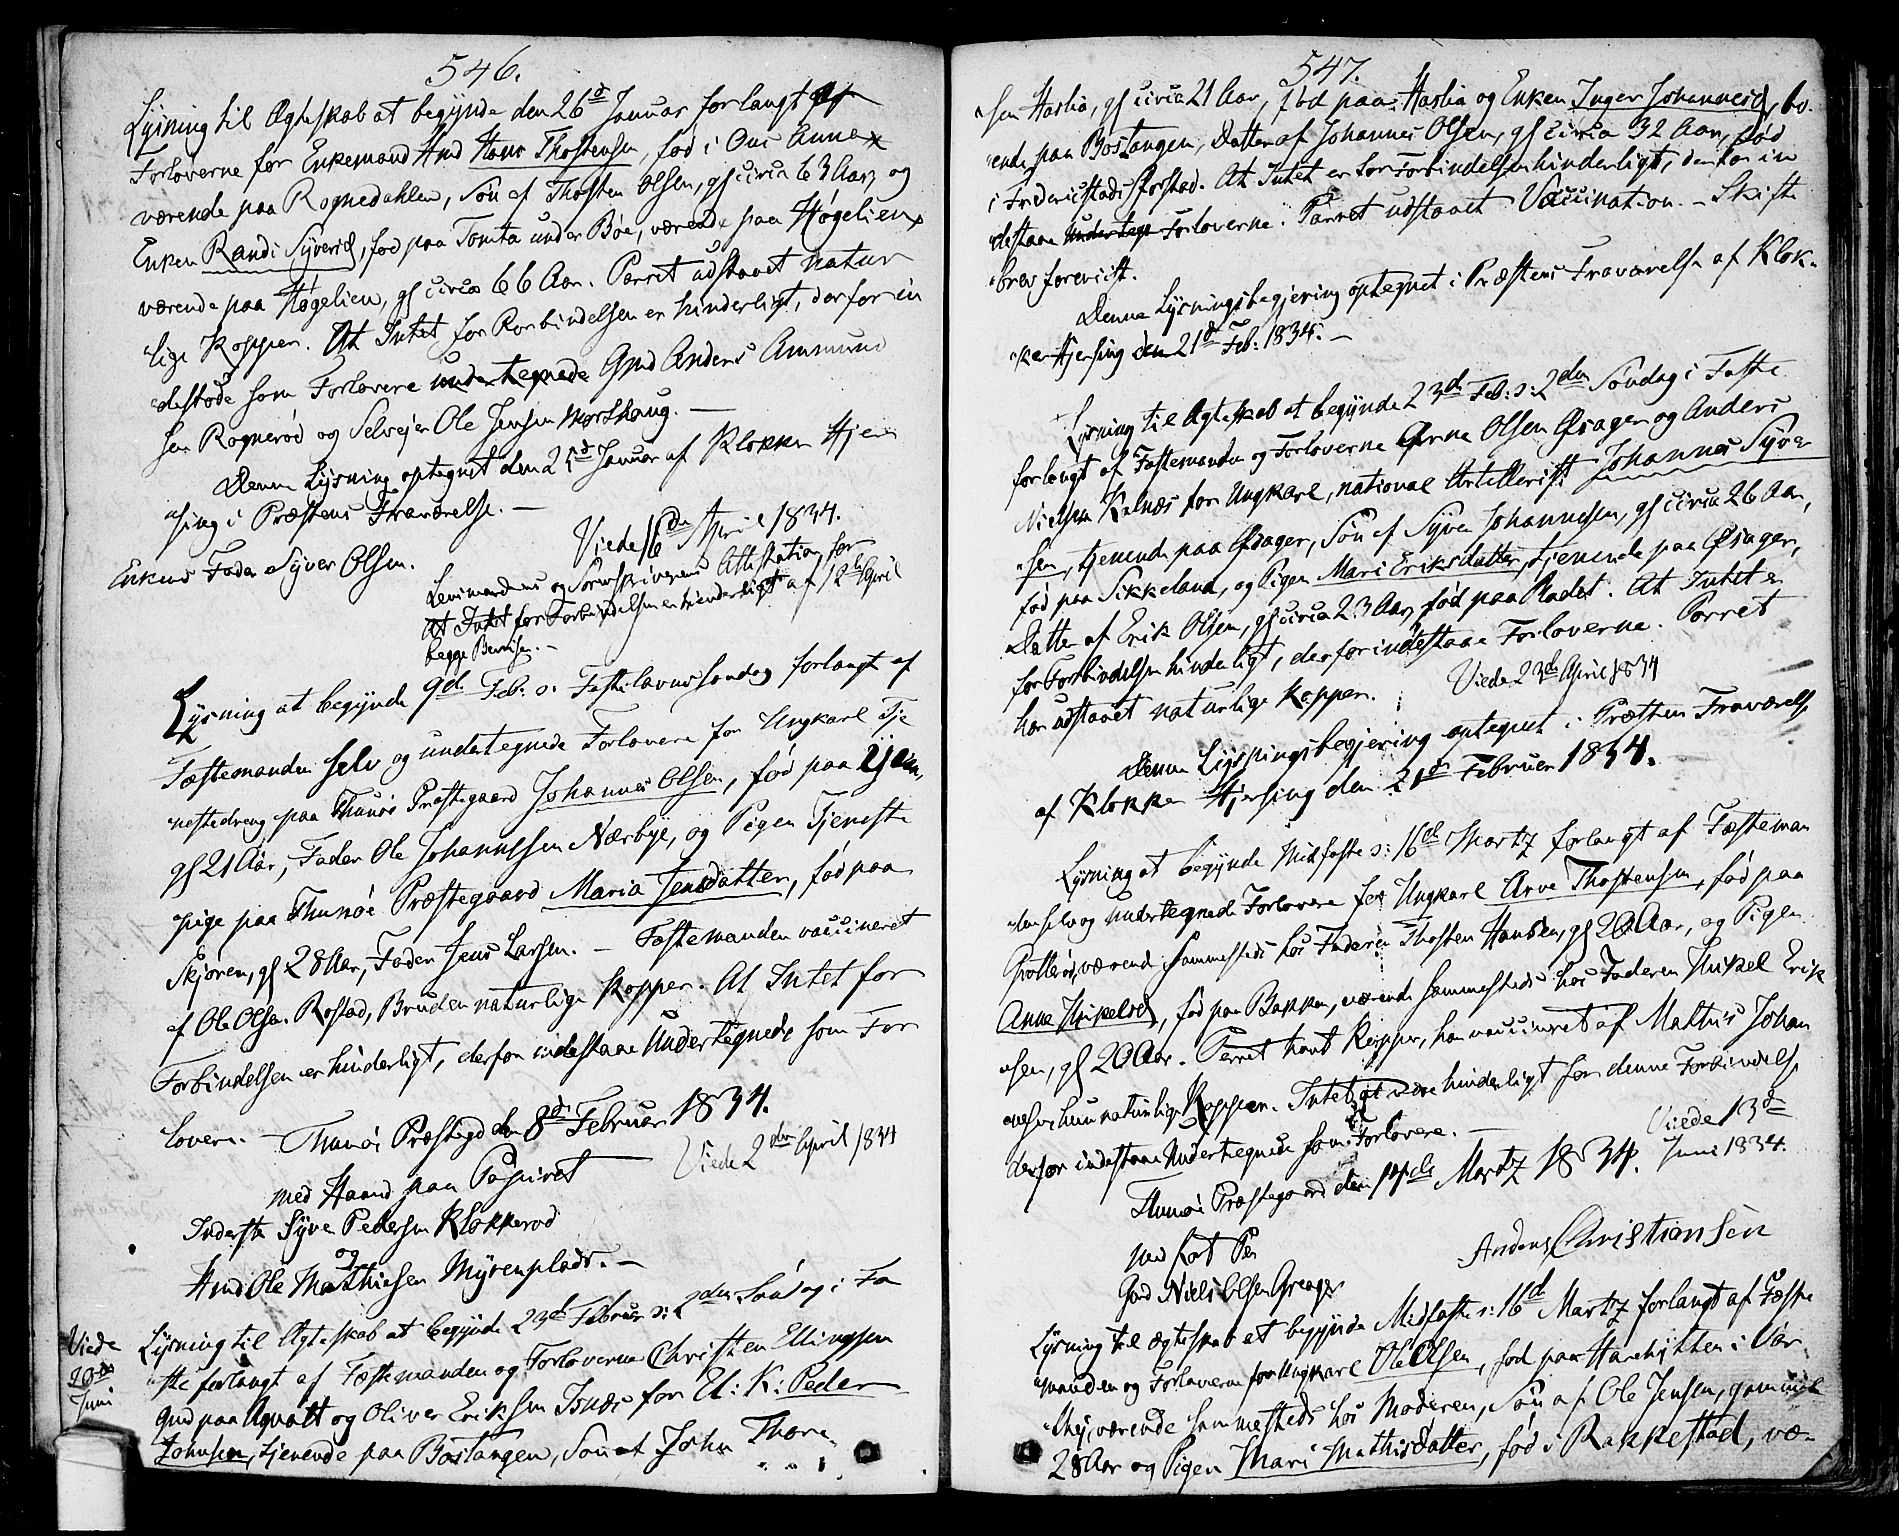 546.
Lysning til Ægteskab at begynde den 26d Januar forlangt af
Forloverne for Enkemand Hmd Hans Thostensen, fød i Ons Annex
værende paa Rognedahlen, Søn af Thosten Olsen, gl circa 63 Aar, og
Enken Randi Syversd, fød paa Tomta under Böe, værende paa Høgelien,
værende paa Høgelien, gl circa 66 Aar. Parret udstaaet natur
lige Kopper. At Intet for Forbindelsen er hinderligt, derfor in
destode som Forlovere undertegnede Gmd Anders Ammund
sen Rognerød og Selvejer Ole Jensen Morshaug. —
Denne Lysning optegnet den 25d Januar af Klokker Hjer
sing i Præstens Fraværelse. —
Viede 16de April 1834.
Enkens Fader Syver Olsen.
Lensmandens og Sorenskriverens Attestation for
At Intet for Forbindelsen er hinderligt af 12te April
begge Beviser. —
Lysning at begynde 9d Feb: o: Fastelavnssøndag forlangt af
Fæstemanden selv og undertegnede Forlovere for Ungkarl Tje
nestedreng paa Thunøe Præstegaard Johannes Olsen, fød paa
gl 21 Aar, Fader Ole Johannssen Nærbye, og Pigen Tjeneste
pige paa Thunøe Præstegaard Maria Jensdatter, fød paa
Skjøren, gl 28 Aar, Fader Jens Larsen. — Fæstemanden vaccineret
af Ole Olsen Rostad, Bruden naturlige Kopper. At Intet for
Forbindelsen er hinderligt, derfor indestaae Undertegnede som For
lovere. — Thunøe Præstegd den 8d Februar 1834.
Viede 2den April 1834
med Haand paa Papiret
Inderste Syver Pedersen Klokkerød
og
Hmd Ole Mathiesen Myrenplads. —
Viede
20de
Juni
Lysning til Ægteskab at begynde 23d Februar o: 2den Søndag i Fa
ste forlangt af Fæstemanden og Forloverne Christen Ellingsen
Gmd paa Agnalt og Oliver Eriksen Isnæs for E: K: Peder
Johnsen, tjenende paa Bostangen, Søn af John Thore
547.
sen Haslia, gl circa 21 Aar, fød paa Haslia og Enken Inger Johannesd, bo
ende paa Bostangen, Datter af Johannes Olsen, gl circa 32 Aar, fød
i Fredericstads Forstad. At Intet er for Forbindelsen hinderligt, derfor in
destaae undertegn Forloverne. Parret udstaaet Vaccination. — Skifte
brev forevist.
Denne Lysningsbegjering optegnet i Præstens Fraværelse af Klok
ker Hjersing den 21d Feb: 1834. —
Lysning til Ægteskab at begynde 23d Feb: o: 2den Søndag i Faste
forlangt af Fæstemanden og Forloverne Arne Olsen Øsager og Anders
Nielsen Kalnæs for Ungkarl, national Artillerist Johannes Syver
sen, tjenende paa Øsager, Søn af Syver Johannessen, gl circa 26 Aar,
fød paa Sikkeland, og Pigen Mari Eriksdatter, tjenende paa Øsager,
Datter af Erik Olsen, gl circa 23 Aar, fød paa Rødet. At Intet er
for Forbindelsen hinderligt, derfor indestaae Forloverne. Parret
har udstaaet naturlige Kopper.
Viede 23d April 1834
Denne Lysningsbegjering optegnet i Præstens Fraværelse
af Klokker Hjersing den 21d Februar 1834.
Lysning at begynde Midfaste o: 16d Martz forlangt af Fæsteman
den selv og undertegnede Forlovere for Ungkarl Arve Thostensen, fød paa
værende sammesteds hos Faderen Thosten Hansen, gl 20 Aar, og Pigen
Anne Mikelsd, fød paa Bakken, værende sammesteds hos Faderen Mikel Erik
sen, gl 20 Aar. Parret havt Kopper, han vaccineret af Mathis Johan
nesen hun naturlige Kopper. Intet at være hinderligt for denne Forbindelse
derfor indestaae Undertegnede som Forlovere. —
Viede 13de
Juni 1834.
Thunøe Præstegaard den 14de Martz 1834.
med ført Pen
Anders Christiansen
Gmd Niels Olsen Greager
Lysning til Ægteskab at begynde Midfaste o: 16d Martz forlangt af Fæste
manden og Forloverne for Ungkarl Ole Olsen, fød paa Harehytten i Var
skej, værende sammesteds hos Moderen, Søn af Ole Jensen, gammel
28 Aar og Pigen Mari Mathisdatter, fød i Rakkestad, væ